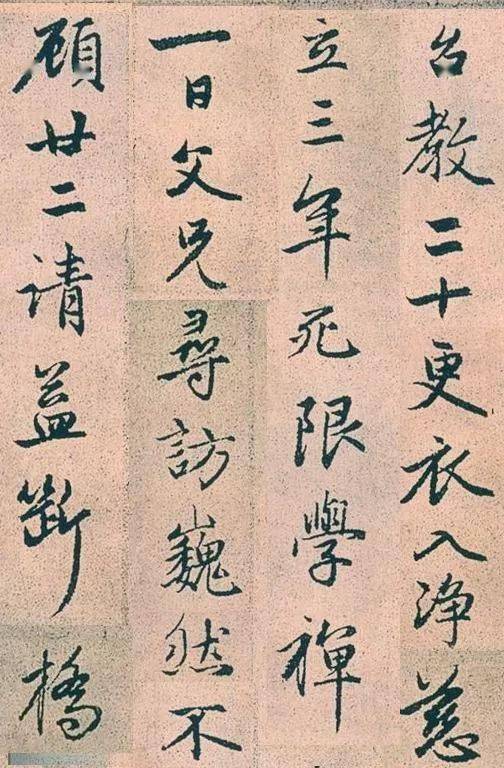 台教二十更衣入净慈
立三年死限學禪
一日父兄尋訪巍然不
顧廿二请益斷橋